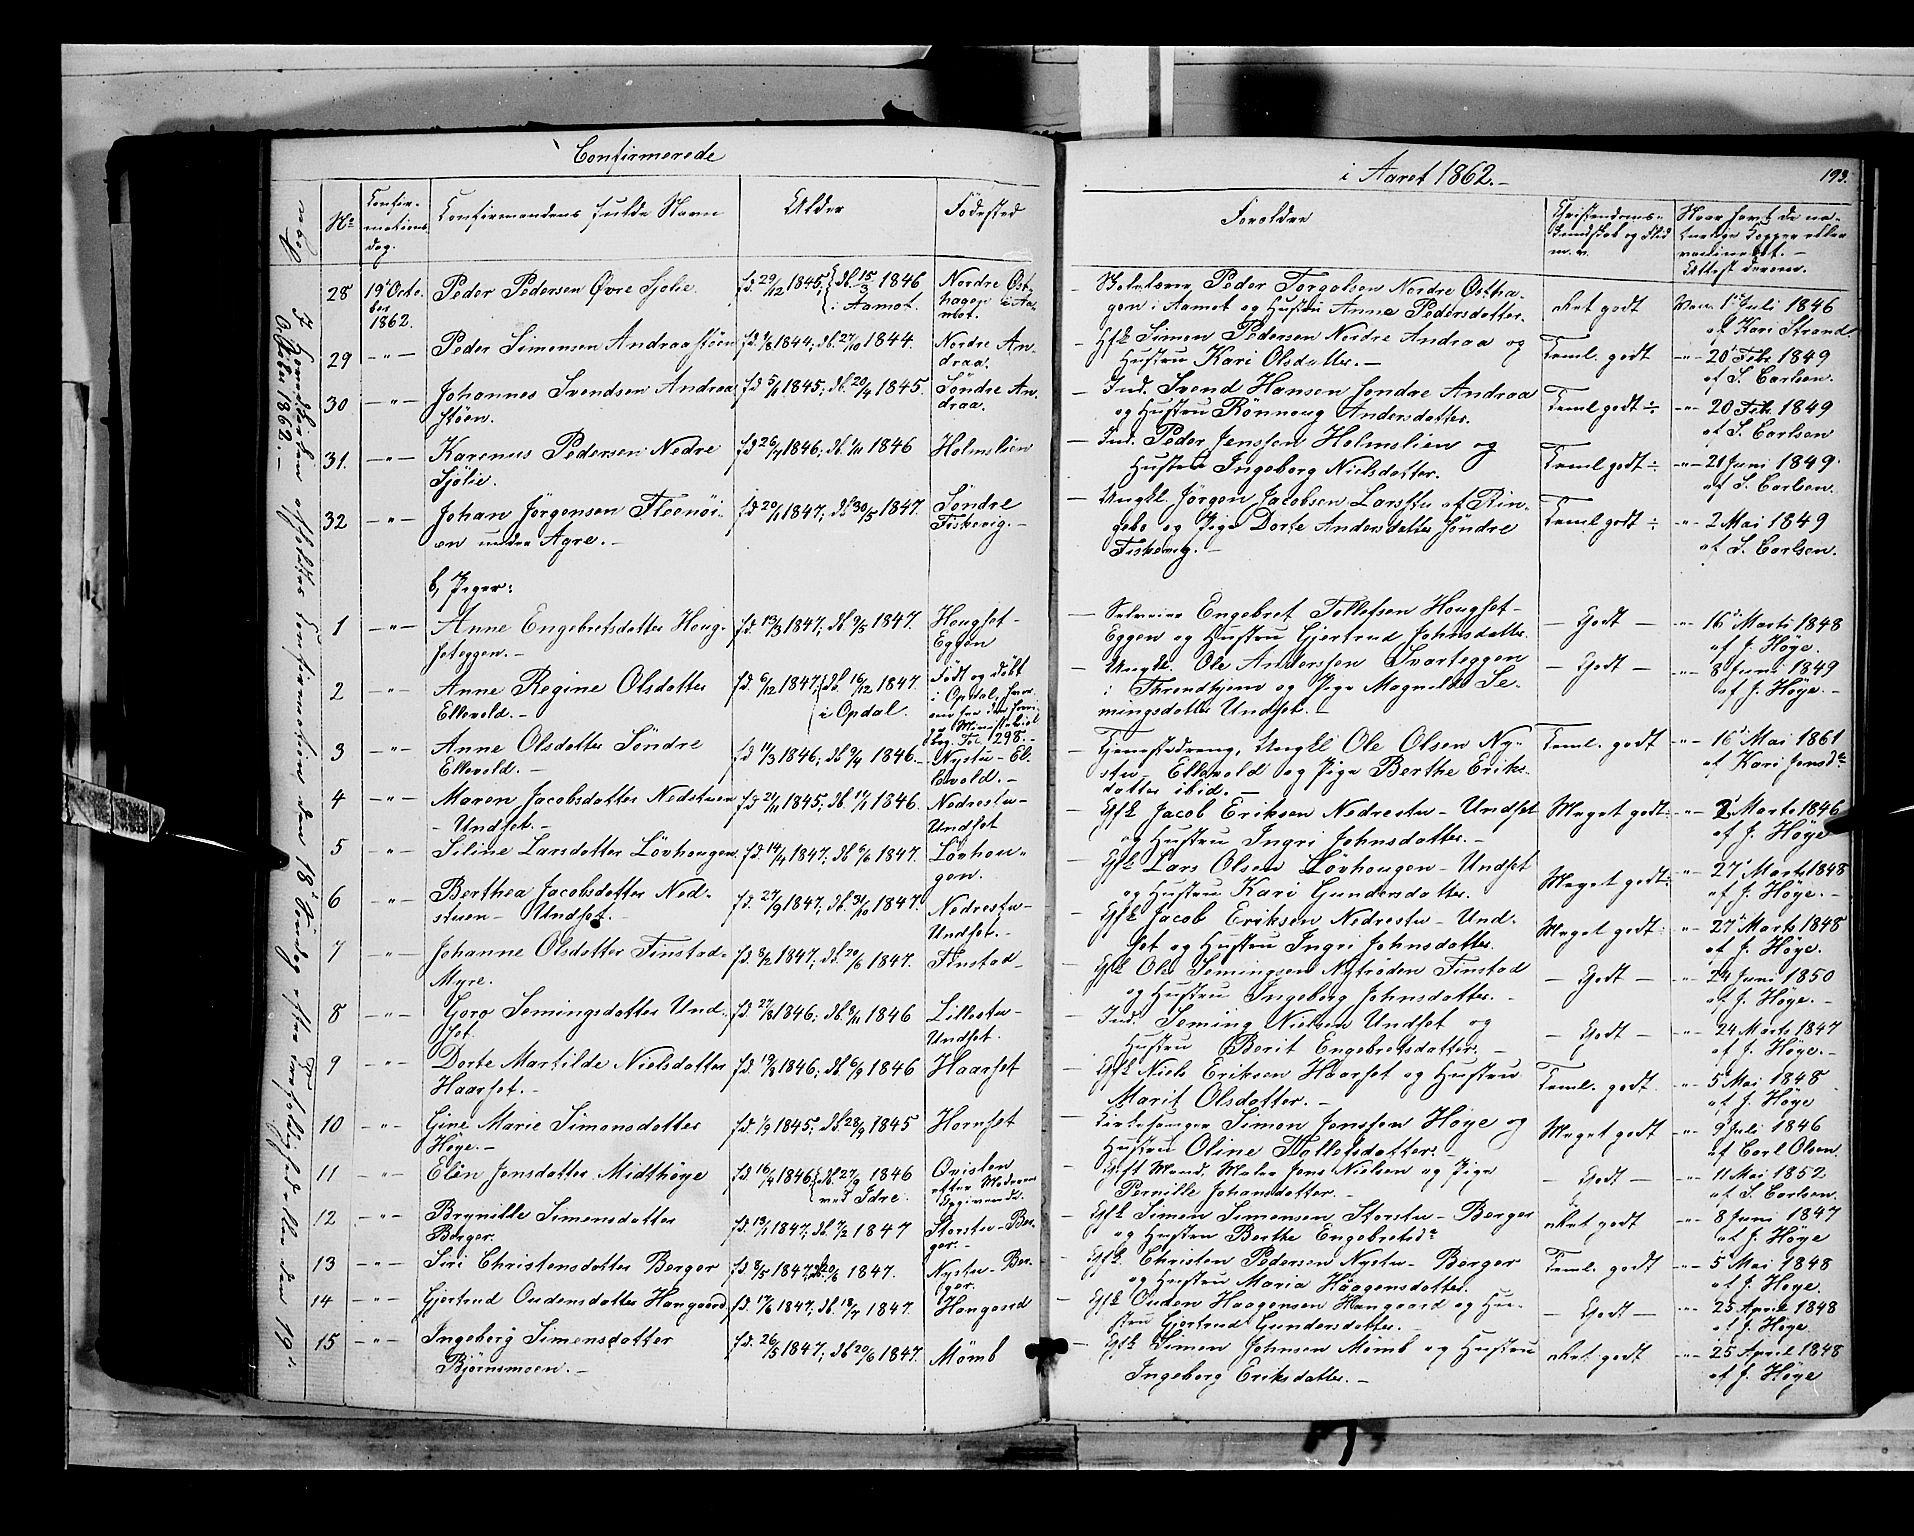 Confirmerede
i Aaret 1862.-
193.
No
Confir-
mations
dag.
Confirmandens fulde Navn
Alder
Fødested
Forældre
Christendoms-
kundskab og Flid
m. v.
Naar havt de na-
turlige Kopper eller
vaccineret. -
Attest derom.
28 19de Octo-
ber
1862.
Peder Pedersen Øvre Sjølie
fd. 29/12 1845; db. 15/3 1846
i Aamot.
Nordre Ost-
hagen i Aa-
mot.
Selveier Peder Torgalsen Nordre Ostha-
gen i Aamot og Hustru Anne Pedersdatter.
Ret godt
Vacc. 1 Juli 1846
af Kari Strand.
29 -"- Peder Simensen Andraastøen
fd 1/8 1844; db. 27/10 1844.
Nordre An-
draa.
- Gfb. Simen Pedersen Nordre Andraa og
Hustru Kari Olsdatter. -
Teml. godt
-"- 20 Febr 1849
af S. Carlsen.
30 -"- Johannes Svendsen Andraa
støen.
fd 5/1 1845; db. 20/4 1845.
Søndre An-
draa.
- Ind. Svend Hansen Søndre Andraa
og Hustru Rønnoug Andersdatter.
Teml godt ÷
-"- 20 Febr. 1849
af S. Carlsen
31. -"- Karenus Pedersen Nedre
Sjølie.
fd 26/7 1846; db. 1/11 1846
Holmslien
- Ind. Peder Jenssen Holmslien og
Hustru Ingeborg Nielsdatter.
Teml godt ÷
-"- 21 Juni 1849.
af S. Carlsen.
32 -"- Johan Jørgensen Fleenøi-
en under Agre. -
fd 20/1 1847; db 30/5 1847.
Søndre
Fiskevig. -
- Ungkl. Jørgen Jacobsen Larsstu af Rin-
gebo og Pige Dorte Andersdatter Søndre
Fiskevig. -
Teml godt ÷
-"- 2 Mai 1849
af S. Carlsen.
b, Piger:
1 -"- Anne Engebretsdatter Houg-
seteggen. -
fd. 13/3 1847; db 9/5 1847.
Hougset-
Eggen
- Selveier Engebret Tollefsen Hougset-
Eggen og Hustru Gjertrud Johnsdatter.
- Godt -
-"- 16 Marts 1848
af J. Høye.
2 -"- Anne Regine Olsdatter
Ellevold. -
fd. 6/12 1847; db. 16/12 1847.
i Opdal.
Født og døbt
i Opdal,
- Ungkl. Ole Anderssen Svarteggen
i Throndhjem og Pige Magnild Se-
mingsdatter Undset. -
- Godt -
-"- 8 Juni 1849
af J. Høye. -
3 -"- Anne Olsdatter Søndre
Ellevold. -
fd 11/3 1846; db 9/4 1846. -
Nystu - El-
levold. -
- Tjenestedreng, Ungkl Ole Olsen Ny-
stu - Ellevold og Pige Berthe Eriks-
datter ibid. -
Teml. godt
-"- 16 Mai 1861
af Kari Jensdr
4 -"- Maren Jacobsdatter Nedstuen
- Undset. -
fd 21/11 1845; db. 11/1 1846.
Nedrestu-
Undset
- Gfb Jacob Eriksen Nedrestu - Undset
og Hustru Ingri Johnsdatter. -
Meget godt:
-"- 2 Marts 1846
af J. Høye.
5 -"- Seline Larsdatter Løvhougen
fd. 14/4 1847; db 6/6 1847.
Løvhou-
gen.
- Gfb Lars Olsen Løvhougen - Undset
og Hustru Kari Gundersdatter.
Meget godt:
-"- 27 Marts 1848
af J. Høye. -
6 -"- Berthea Jacobsdatter Ned-
stuen - Undset. -
fd. 27/9 1847; db. 31/10 1847.
Nedrestu-
Undset. -
- Gfb Jacob Eriksen Nedrestu - Und-
set og Hustru Ingri Johnsdatter.
Meget godt:
-"- 27 Marts 1848
af J. Høye.
7 -"- Johanne Olsdatter Finstad-
Myre.
fd. 8/2 1847; db. 20/6 1847.
Finstad-
- Gfb Ole Semingsen Nytrøden Finstad
og Hustru Ingeborg Johnsdatter. -
- Godt -
-"- 24 Juni 1850
af J. Høye. -
8 -"- Goro Semingsdatter Und-
set.
fd. 27/8 1846; db. 8/11 1846
Lillestu-
Undset.
- Ind. Seming Nielsen Undset og
Hustru Berit Engebretsdatter. -
- Godt -
-"- 24 Marts 1847
af J. Høye. -
9 -"- Dorte Martilde Nielsdatter
Haarset. -
fd. 19/8 1846; db 6/9 1846
Haarset
- Gfb Niels Eriksen Haarset og Hustru
Marit Olsdatter. -
Teml. godt
-"- 5 Mai 1848
af J. Høye
10 -"- Gine Marie Simonsdatter
Høye. -
fd. 1/9 1845; db. 28/9 1845
Hornset
- Kirkesanger Simon Jonssen Høye og
Hustru Oline Tollefsdatter. -
Meget godt
-"- 9 Juli 1846
af Carl Olsen.
11 -"- Elen Jensdatter Midthøye
fd 16/4 1846; db. 27/9 1846
ved Idre.
Qvisten
efter Moderens
Opgivende.
- Gift Mand, Maler Jens Nielsen og Pige
Pernille Johansdatter. -
- Godt -
-"- 11 Mai 1852
af S. Carlsen.
12 -"- Brynille Simensdatter
Berger.
fd. 13/1 1847; db. 7/2 1847
Storstu - Ber-
ger. -
- Gfb Simen Simensen Storstu - Berger
og Hustru Berthe Engebretsdr
Ret godt
-"- 8 Juni 1847
af J. Høye
13 -"- Siri Christensdatter Berger
fd 8/5 1847; db. 20/6 1847.
Nystu - Ber-
ger.
- Gfb. Christen Pedersen Nystu - Berger
og Hustru Maria Haagensdatter.
Teml. godt
-"- 5 Mai 1848
af J. Høye.
14 -"- Gjertrud Oudensdatter Hangaard
fd. 17/6 1847; db. 18/7 1847.
Hangaard
- Gfb Ouden Haagensen Hangaard og Hu-
stru Gjertrud Gundersdatter. -
- Godt -
-"- 25 April 1848
af J. Høye.
15 -"- Ingeborg Simensdatter
Bjørnsmoen. -
fd. 26/5 1847; db 20/6 1847.
Mømb
- Gfb Simen Johnsen Mømb og Hustru
Ingeborg Eriksdatter. -
Ret godt
-"- 25 April 1848
af J. Høye